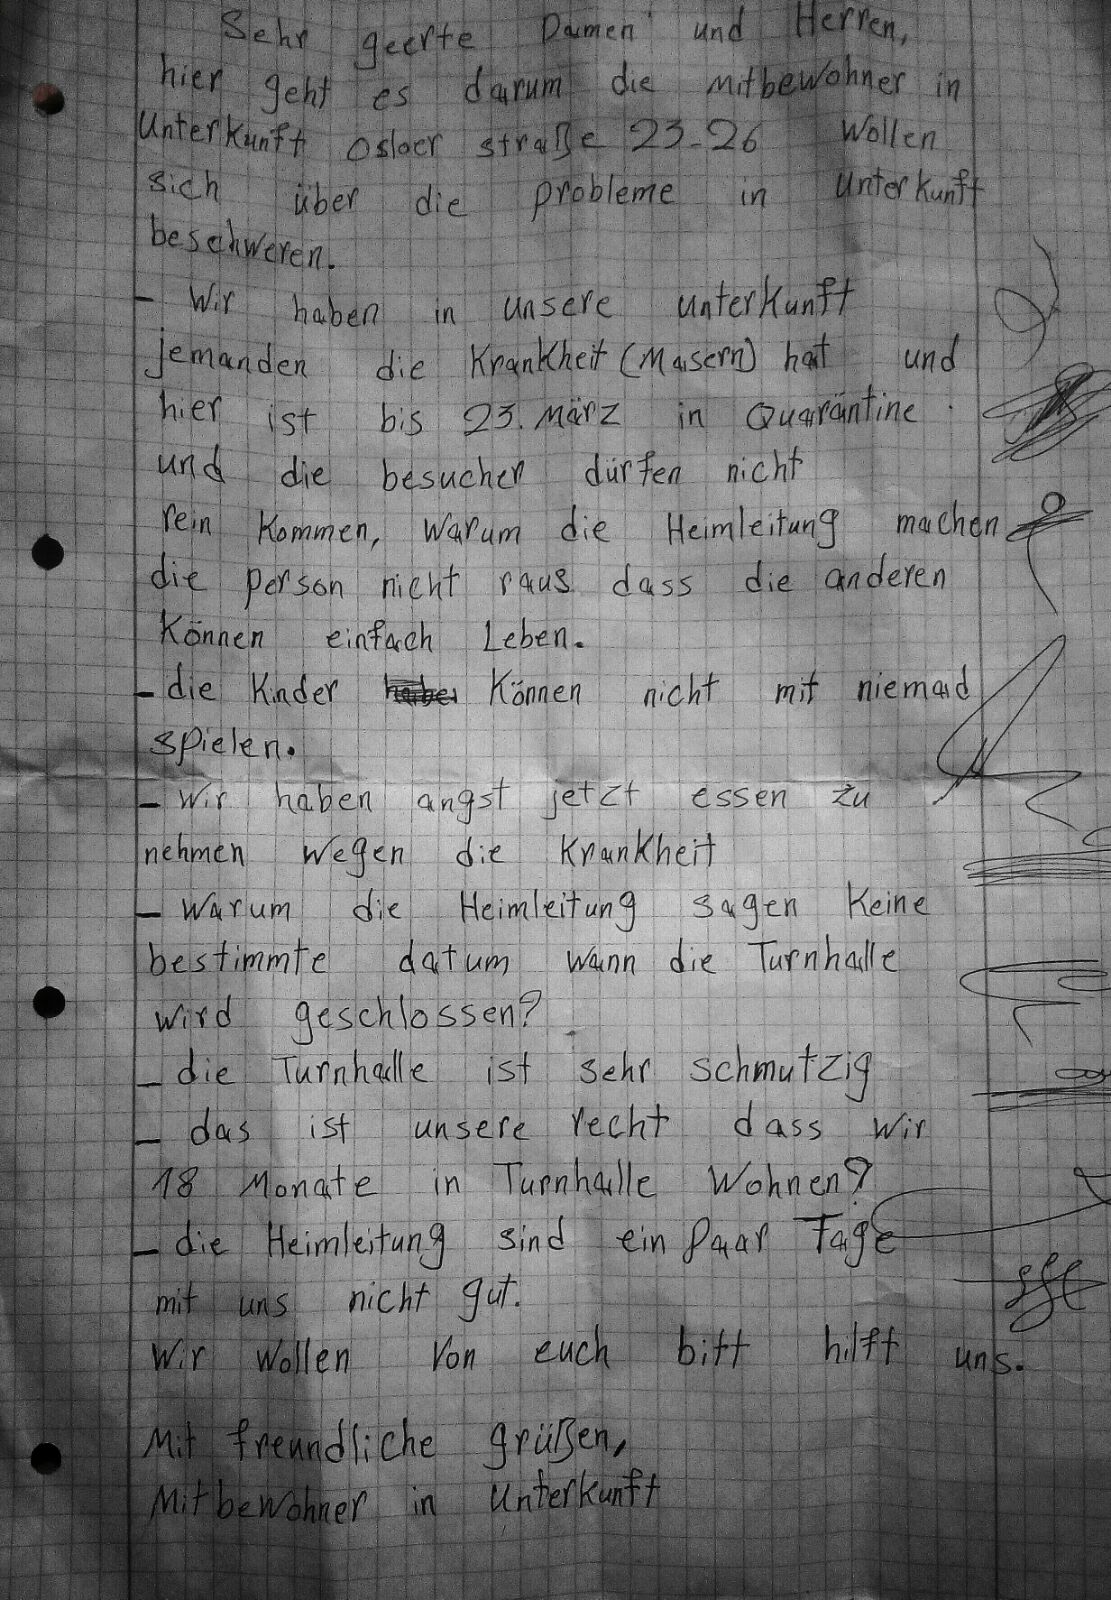 Sehr geerte Damen und Herren,
hier geht es darum die mitbewohner in
Unterkunft osloer straße 23-26 wollen
sich über die probleme in unterkunft
beschweren.
- Wir haben in unsere unterkunft
jemanden die Krankheit (Masern) hat und
hier ist bis 23. März in Quaräntine
und die besucher dürfen nicht
rein kommen, warum die Heimleitung machen
die person nicht raus dass die anderen
können einfach Leben.
- die Kinder können nicht mit niemad
spielen.
- Wir haben angst jetzt essen zu
nehmen wegen die Krankheit
- warum die Heimleitung sagen keine
bestimmte datum wann die Turnhalle
wird geschlossen?
- die Turnhalle ist sehr schmutzig
- das ist unsere recht dass wir
18 Monate in Turnhalle wohnen?
- die Heimleitung sind ein paar Tage
mit uns nicht gut.
Wir wollen von euch bitt hilft uns.
Mit freundliche grüßen,
Mitbewohner in Unterkunft